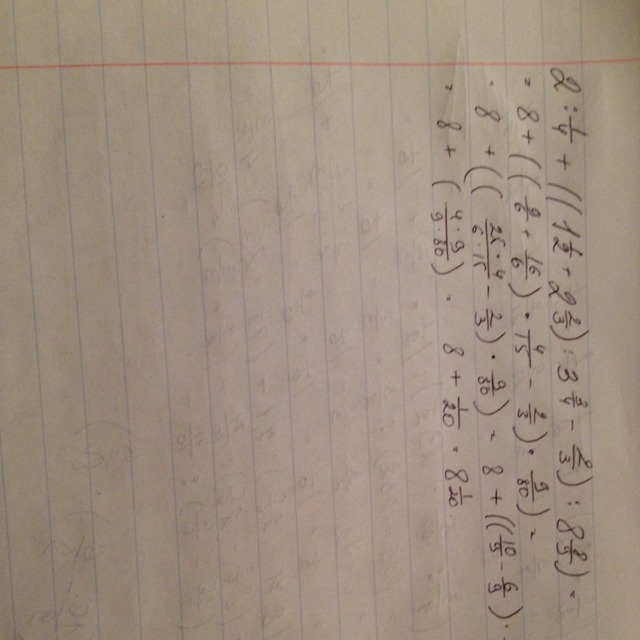 2 : 1/4 + ((1 1/2 + 2 2/3) : 3 3/4 - 2/3) : 8 8/9) =
= 8 + ((9/6 + 16/6) · 4/15 - 2/3) · 9/80) =
= 8 + ((25·4/6·15 - 2/3) · 9/80) = 8 + ((10/9 - 6/9) ·
= 8 + (4·9/9·80) = 8 + 1/20 = 8 1/20